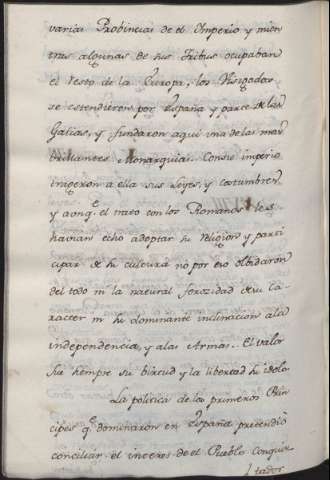 varias Probincias de el Imperio y mien
tras algunas de sus Tribus ocupaban
el resto de la Europa, los Visigodos
se estendieron por España y parte de las
Galias, y fundaron aqui una de las mas
brillantes Monarquias. Con su imperio
trageron a ella sus leyes, y costumbres
y aunq.e el trato con los Romanos les
havian echo adoptar su religion y parti
cipar de su cultura no por eso olbidaron
del todo ni la natural ferozidad de su ca
racter ni su dominante inclinacion a la
independencia, y a las Armas. El valor
fue siempre su birtud y la libertad su idolo
La politica de los primeros Prin
cipes q.e dominaron en España pretendió
conciliar el interes de el Pueblo conquis
tador